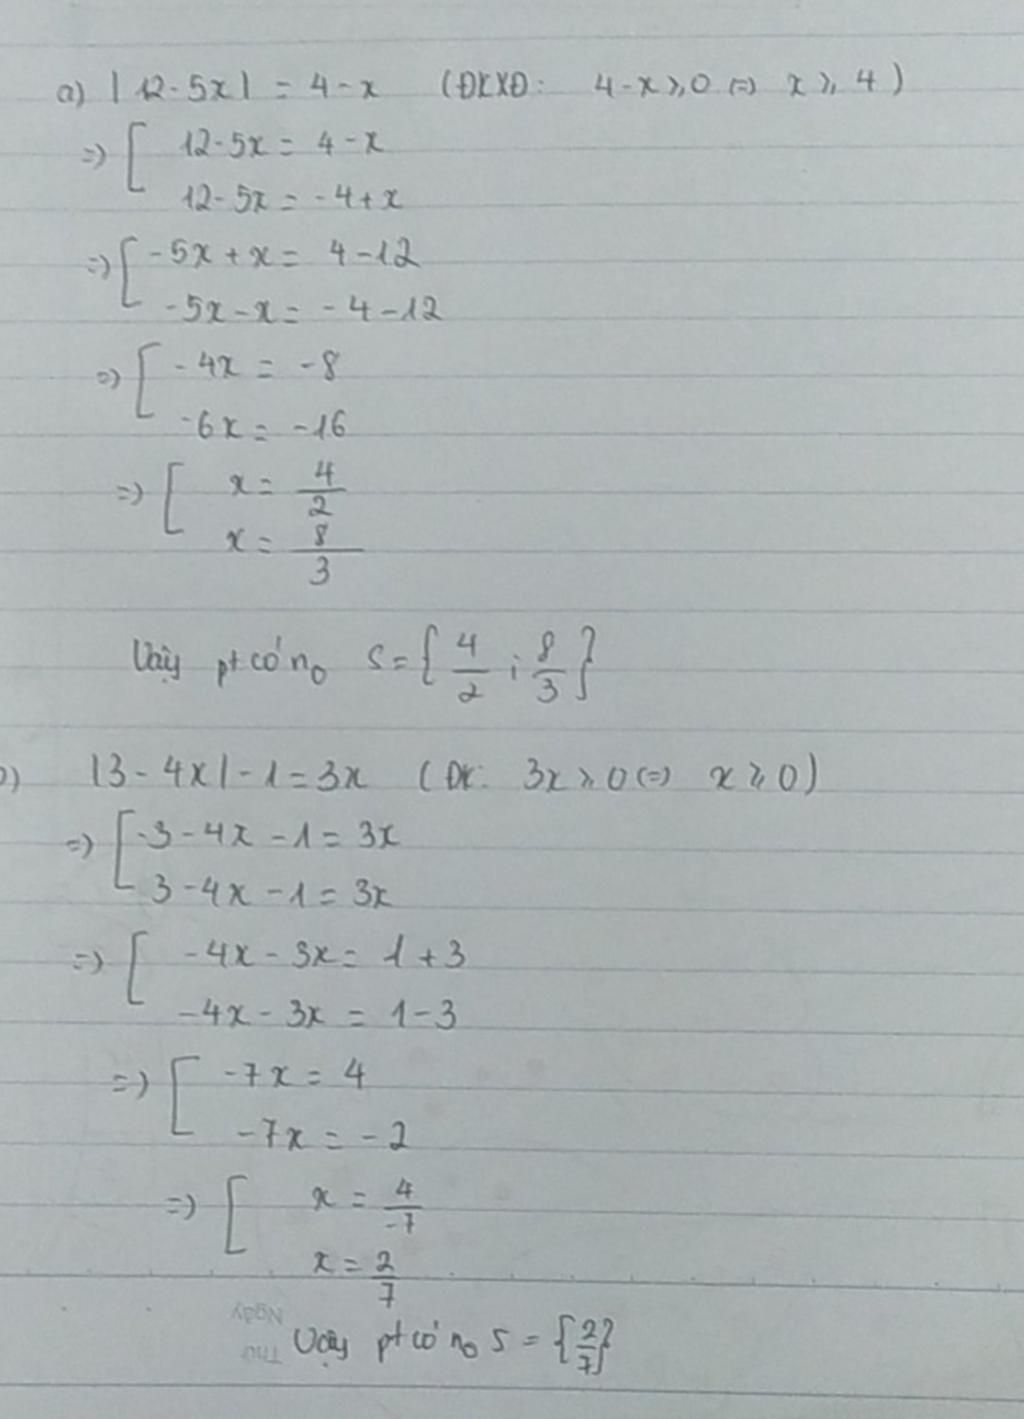 a) | 12-5x| = 4-x (ĐKXĐ: 4-x ≥ 0 (=) x ≥ 4)
=) [ 12-5x = 4-x
12-5x = -4+x
=) [ -5x+x = 4-12
-5x-x = -4-12
=) [ -4x = -8
-6x = -16
=) [ x = 4/2
x = 8/3
Vậy pt có no S={4/2 ; 8/3}
b) |3-4x|-1=3x (ĐK: 3x ≥ 0 (=) x ≥ 0)
=) [ -3-4x-1=3x
3-4x-1=3x
=) [ -4x-3x = 1+3
-4x-3x = 1-3
=) [ -7x = 4
-7x = -2
=) [ x = 4/-7
x = 2/7
Ngày
Thứ
Vậy pt có no S = {2/7}